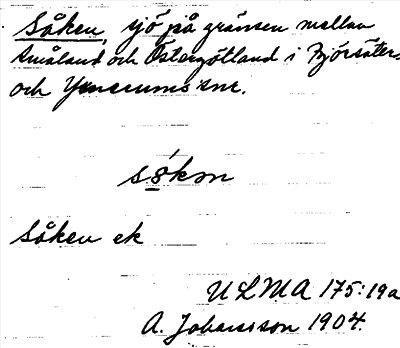 Såken, sjö på gränsen mellan
Småland och Östergötland i Björsäters
och Yxnerums snr.
såkən
Såken ek
ULMA 175:19a
A. Johansson 1904.